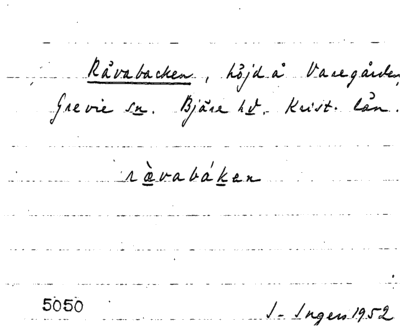 Råvabacken, höjd å Varegården,
Grevie sn. Bjäre hd. Krist. län.
rævabáken
5050
I. Ingers 1952